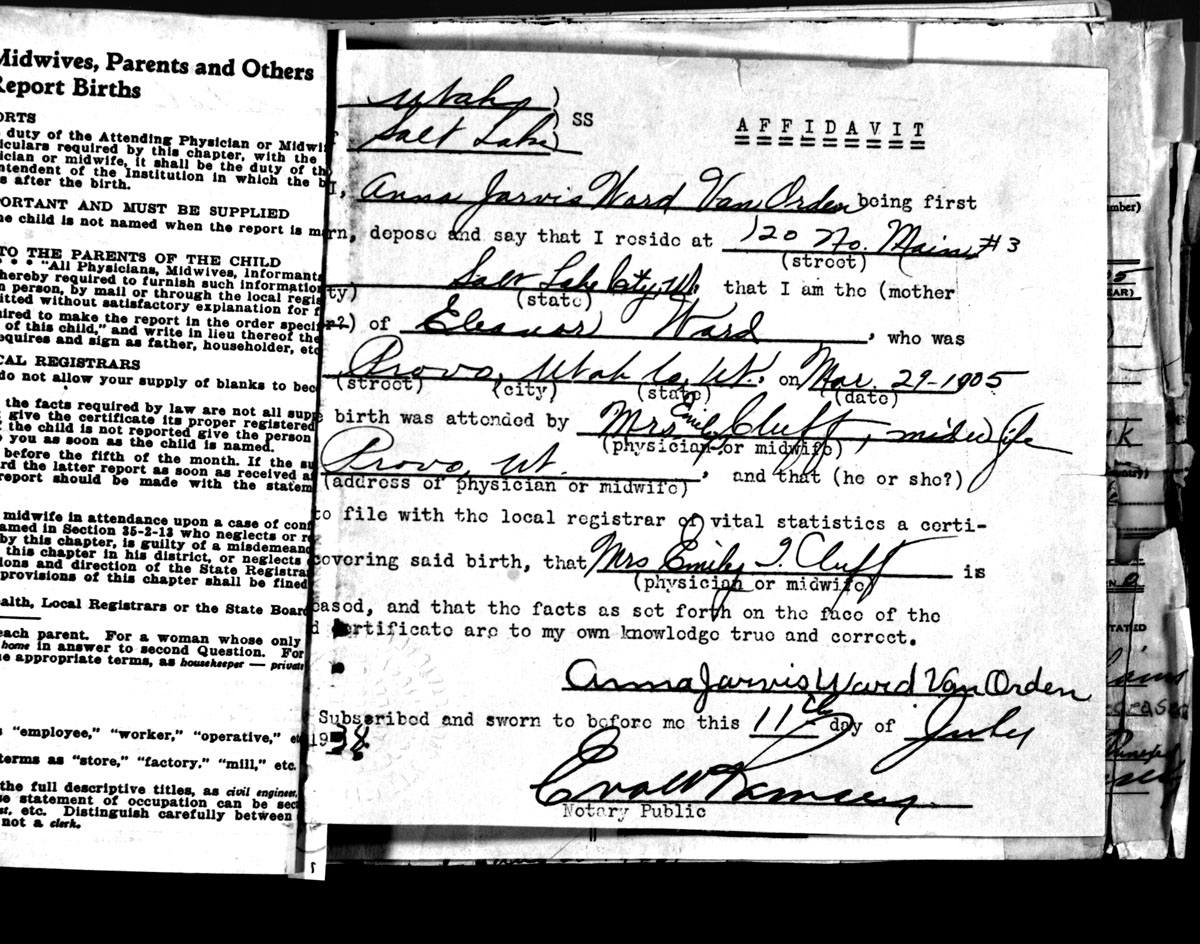 Midwives, Parents and Others
Report Births
ORTS
duty of the Attending Physician or Midwif
iculars required by this chapter, with the
ician or midwife, it shall be the duty of th
ntendent of the Institution in which the b
s after the birth.
PORTANT AND MUST BE SUPPLIED
he child is not named when the report is m
TO THE PARENTS OF THE CHILD
* * * "All Physicians, Midwives, Informants
hereby required to furnish such information
n person, by mail or through the local regis
itted without satisfactory explanation for f
uired to make the report in the order speci
of this child," and write in lieu thereof the
equires and sign as father, householder, etc
CAL REGISTRARS
do not allow your supply of blanks to bec
the facts required by law are not all supp
give the certificate its proper registered
f the child is not reported give the person
o you as soon as the child is named.
before the fifth of the month. If the su
rd the latter report as soon as received a
report should be made with the statem
midwife in attendance upon a case of conf
amed in Section 35-2-13 who neglects or r
by this chapter, is guilty of a misdemeano
this chapter in his district, or neglects
ions and direction of the State Registrar
provisions of this chapter shall be fined
ealth, Local Registrars or the State Board
each parent. For a woman whose only
home in answer to second Question. For
he appropriate terms, as housekeeper — private
s "employee," "worker," "operative," etc
terms as "store," "factory." "mill," etc.
the full descriptive titles, as civil engineer,
e statement of occupation can be sec
st, etc. Distinguish carefully between
not a clerk.
Utah )
Salt Lake ) SS
AFFIDAVIT
I, Anna Jarvis Ward Van Orden being first
rn, depose and say that I reside at 120 No. Main #3
(street)
Salt Lake City, Ut. that I am the (mother
ty) (state)
of Eleanor Ward, who was
Provo, Utah Co, Ut. on Mar. 29-1905
(street) (city) (state) (date)
birth was attended by Mrs Emily Cluff, midwife
(physician or midwife)
Provo, Ut., and that (he or she?)
(address of physician or midwife)
to file with the local registrar of vital statistics a certi-
covering said birth, that Mrs Emily I. Cluff is
(physician or midwife)
eased, and that the facts as set forth on the face of the
d certificate are to my own knowledge true and correct.
Anna Jarvis Ward Van Orden
Subscribed and sworn to before me this 11th day of July
1938
Ramsey
Notary Public